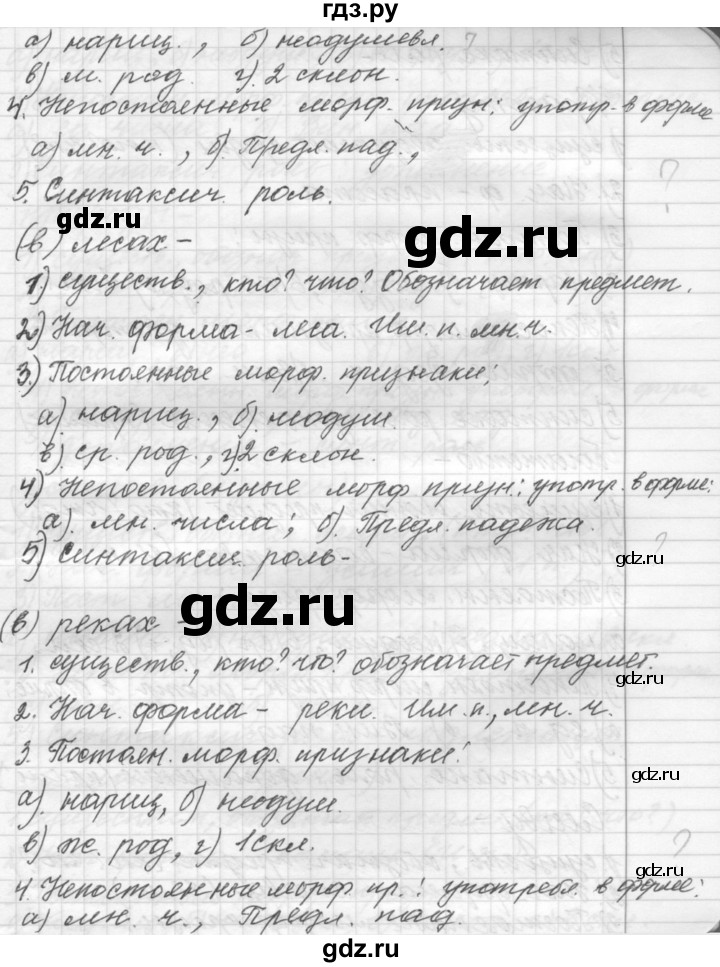 гдз.ру
а) нариц., б) неодумевл.
в) м. род. г) 2 склон.
4. Непостоянные морф. призн: употр. в форме
а) мн. ч., б) Предл. пад.,
5. Синтаксич. роль.
gdz.ru
gdz.ru
(в) лесах -
1.) существ., кто? что? Обозначает предмет.
2) Нач. форма - леса. Им. п. мн. ч.
3.) Постоянные морф. признаки:
а) нариц., б) неодуш.
в) ср. род., г) 2 склон.
4) Непостоянные морф призн: употр. в форме:
а). мн. числа; б). Предл. падежа.
5) Синтаксич. роль -
gdz.ru
gdz.ru
(в) реках -
1. существ., кто? что? обозначает предмет.
gdz.ru
2. Нач. форма - реки. Им. п., мн. ч.
3. Постоян. морф. признаки:
gdz.ru
а). нариц, б) неодуш.
в) ж. род, г) 1 скл.
4. Непостоянные морф. пр.: употребл. в форме:
а) мн. ч., Предл. пад.
gdz.ru
gdz.ru